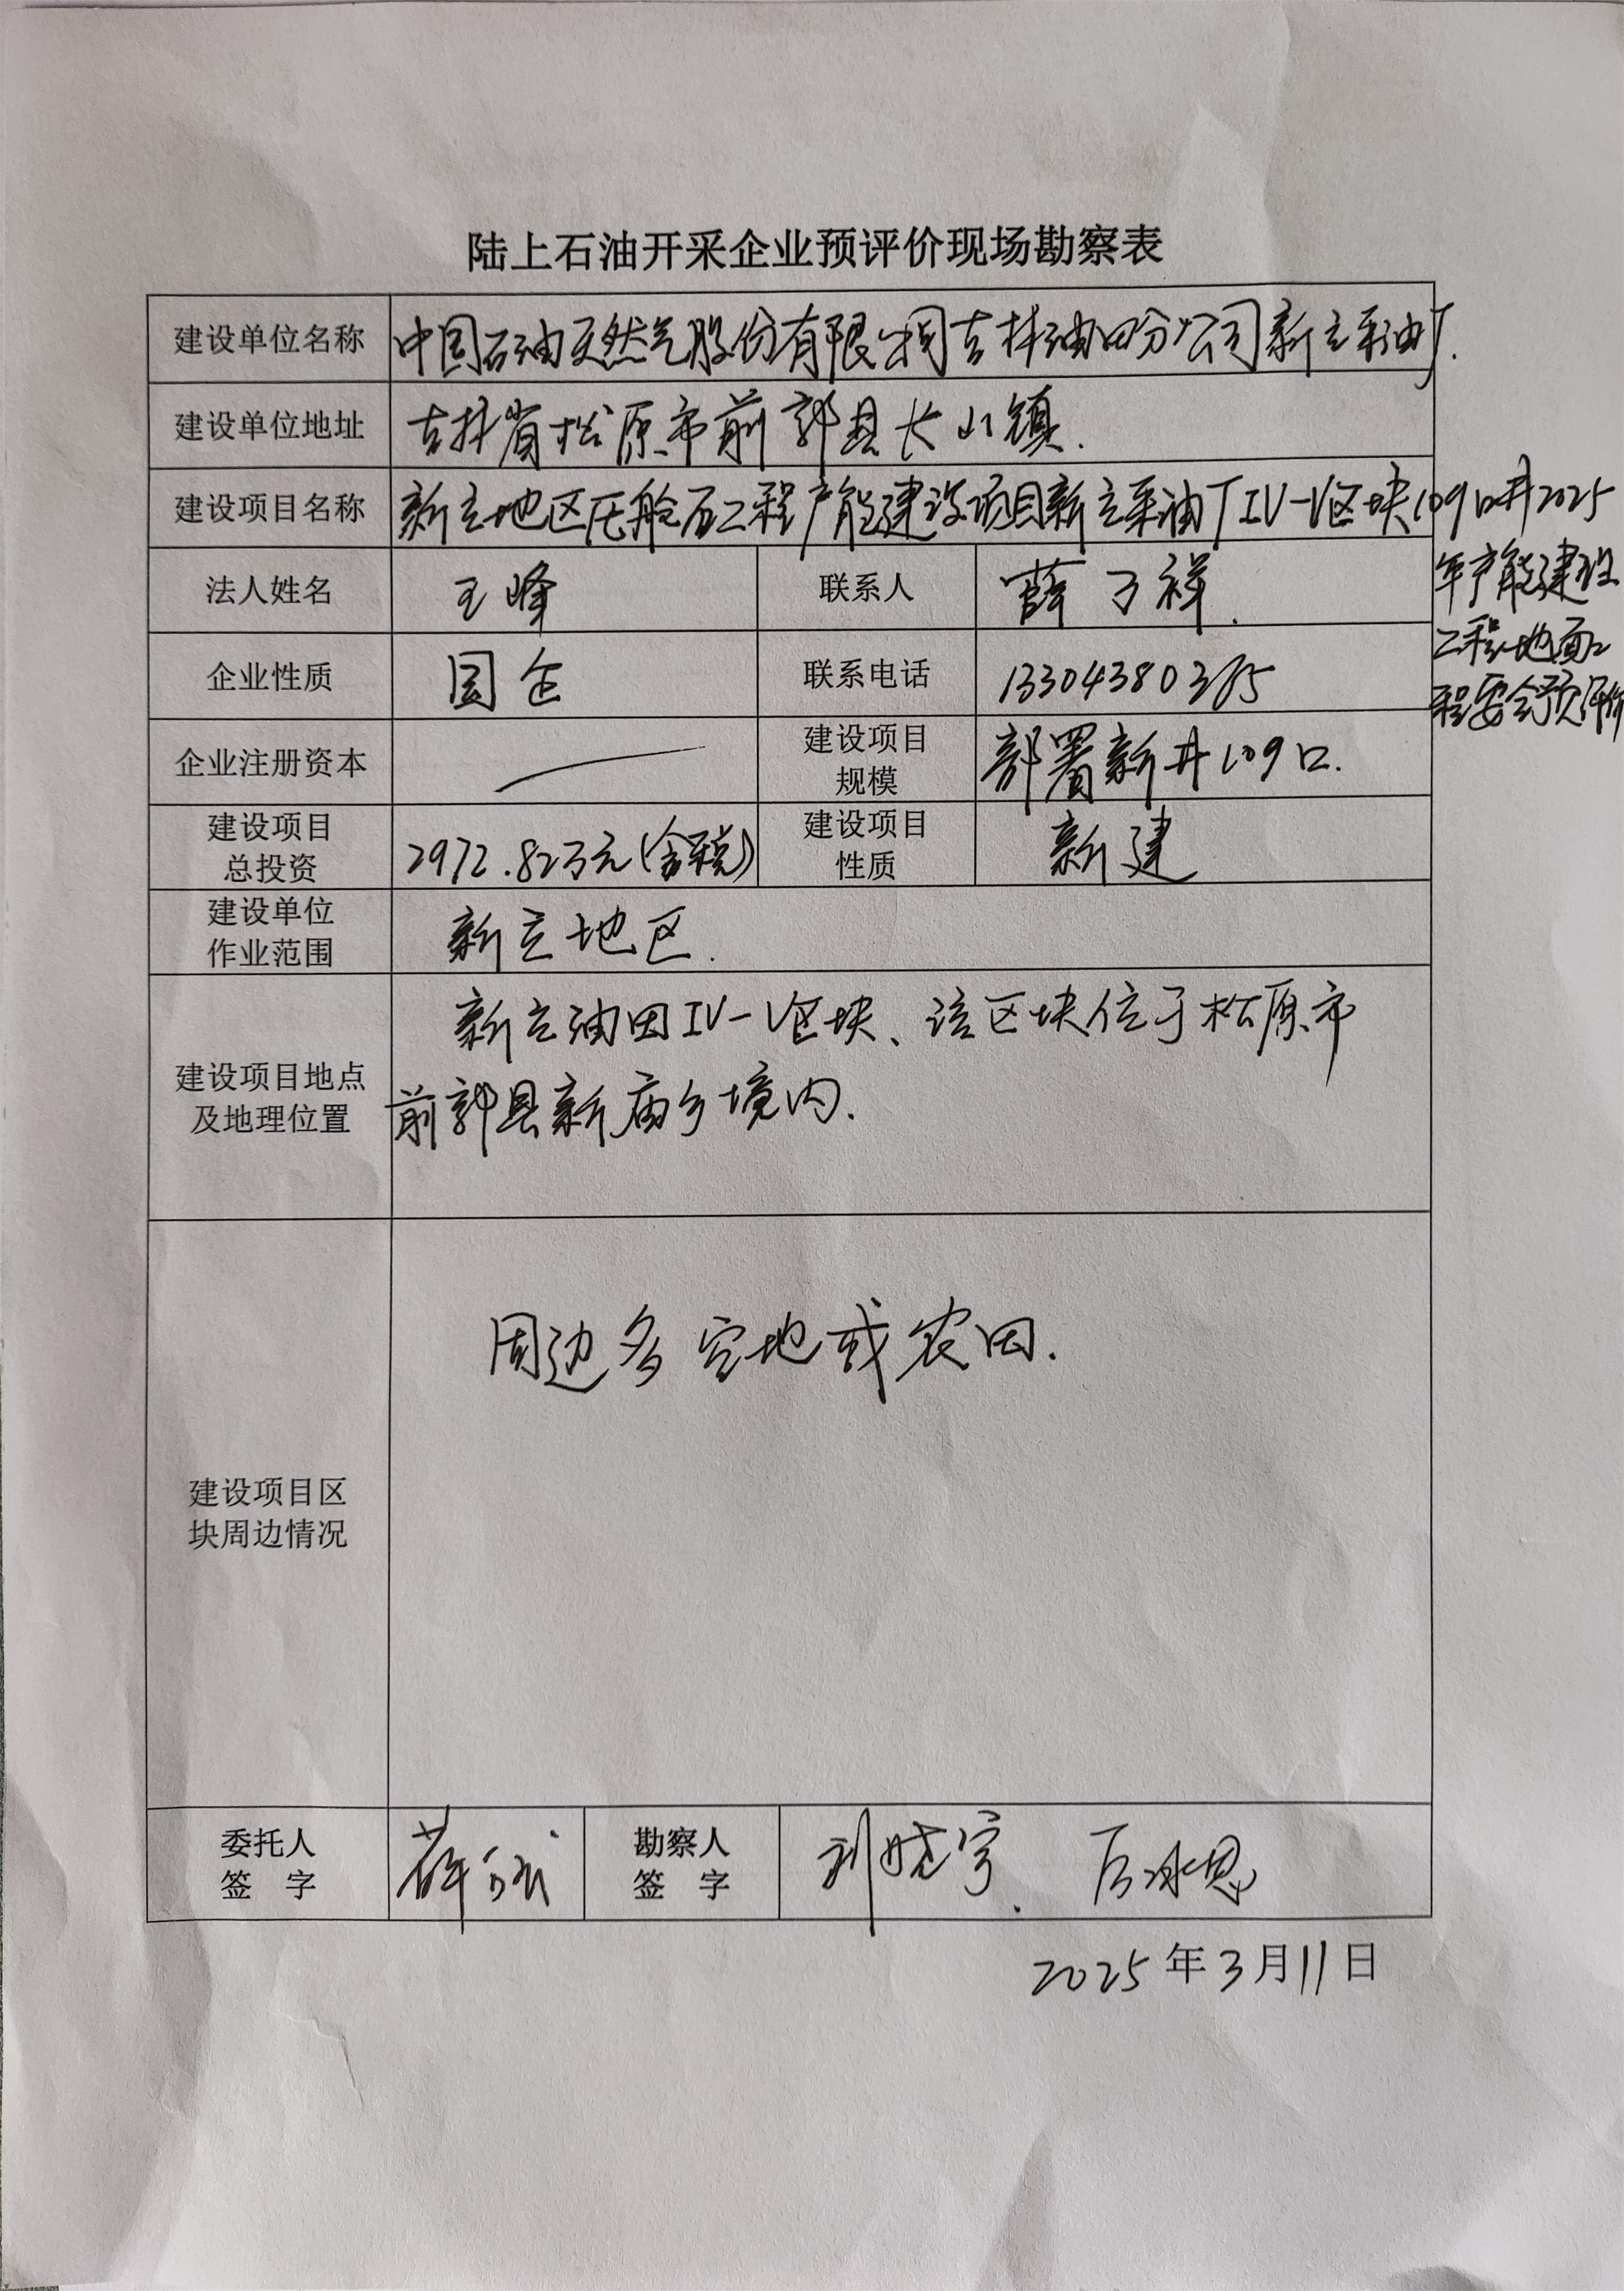 陆上石油开采企业预评价现场勘察表
建设单位名称 中国石油天然气股份有限公司吉林油田分公司新立采油厂.
建设单位地址 吉林省松原市前郭县长山镇.
建设项目名称 新立地区压舱石工程产能建设项目新立采油厂IV-V区块109口井2025
年产能建设
工程地面工
程安全预评价
法人姓名 王峰 联系人 薛子祥.
企业性质 国企 联系电话 13304380385
企业注册资本 — 建设项目
规模 部署新井109口.
建设项目
总投资 2972.82万元(含税) 建设项目
性质 新建
建设单位
作业范围 新立地区.
建设项目地点
及地理位置
新立油田IV-V区块、该区块位于松原市
前郭县新庙乡境内.
建设项目区
块周边情况
周边多空地或农田.
委托人
签 字 薛 勘察人
签 字 刘晓宇.
2025年3月11日